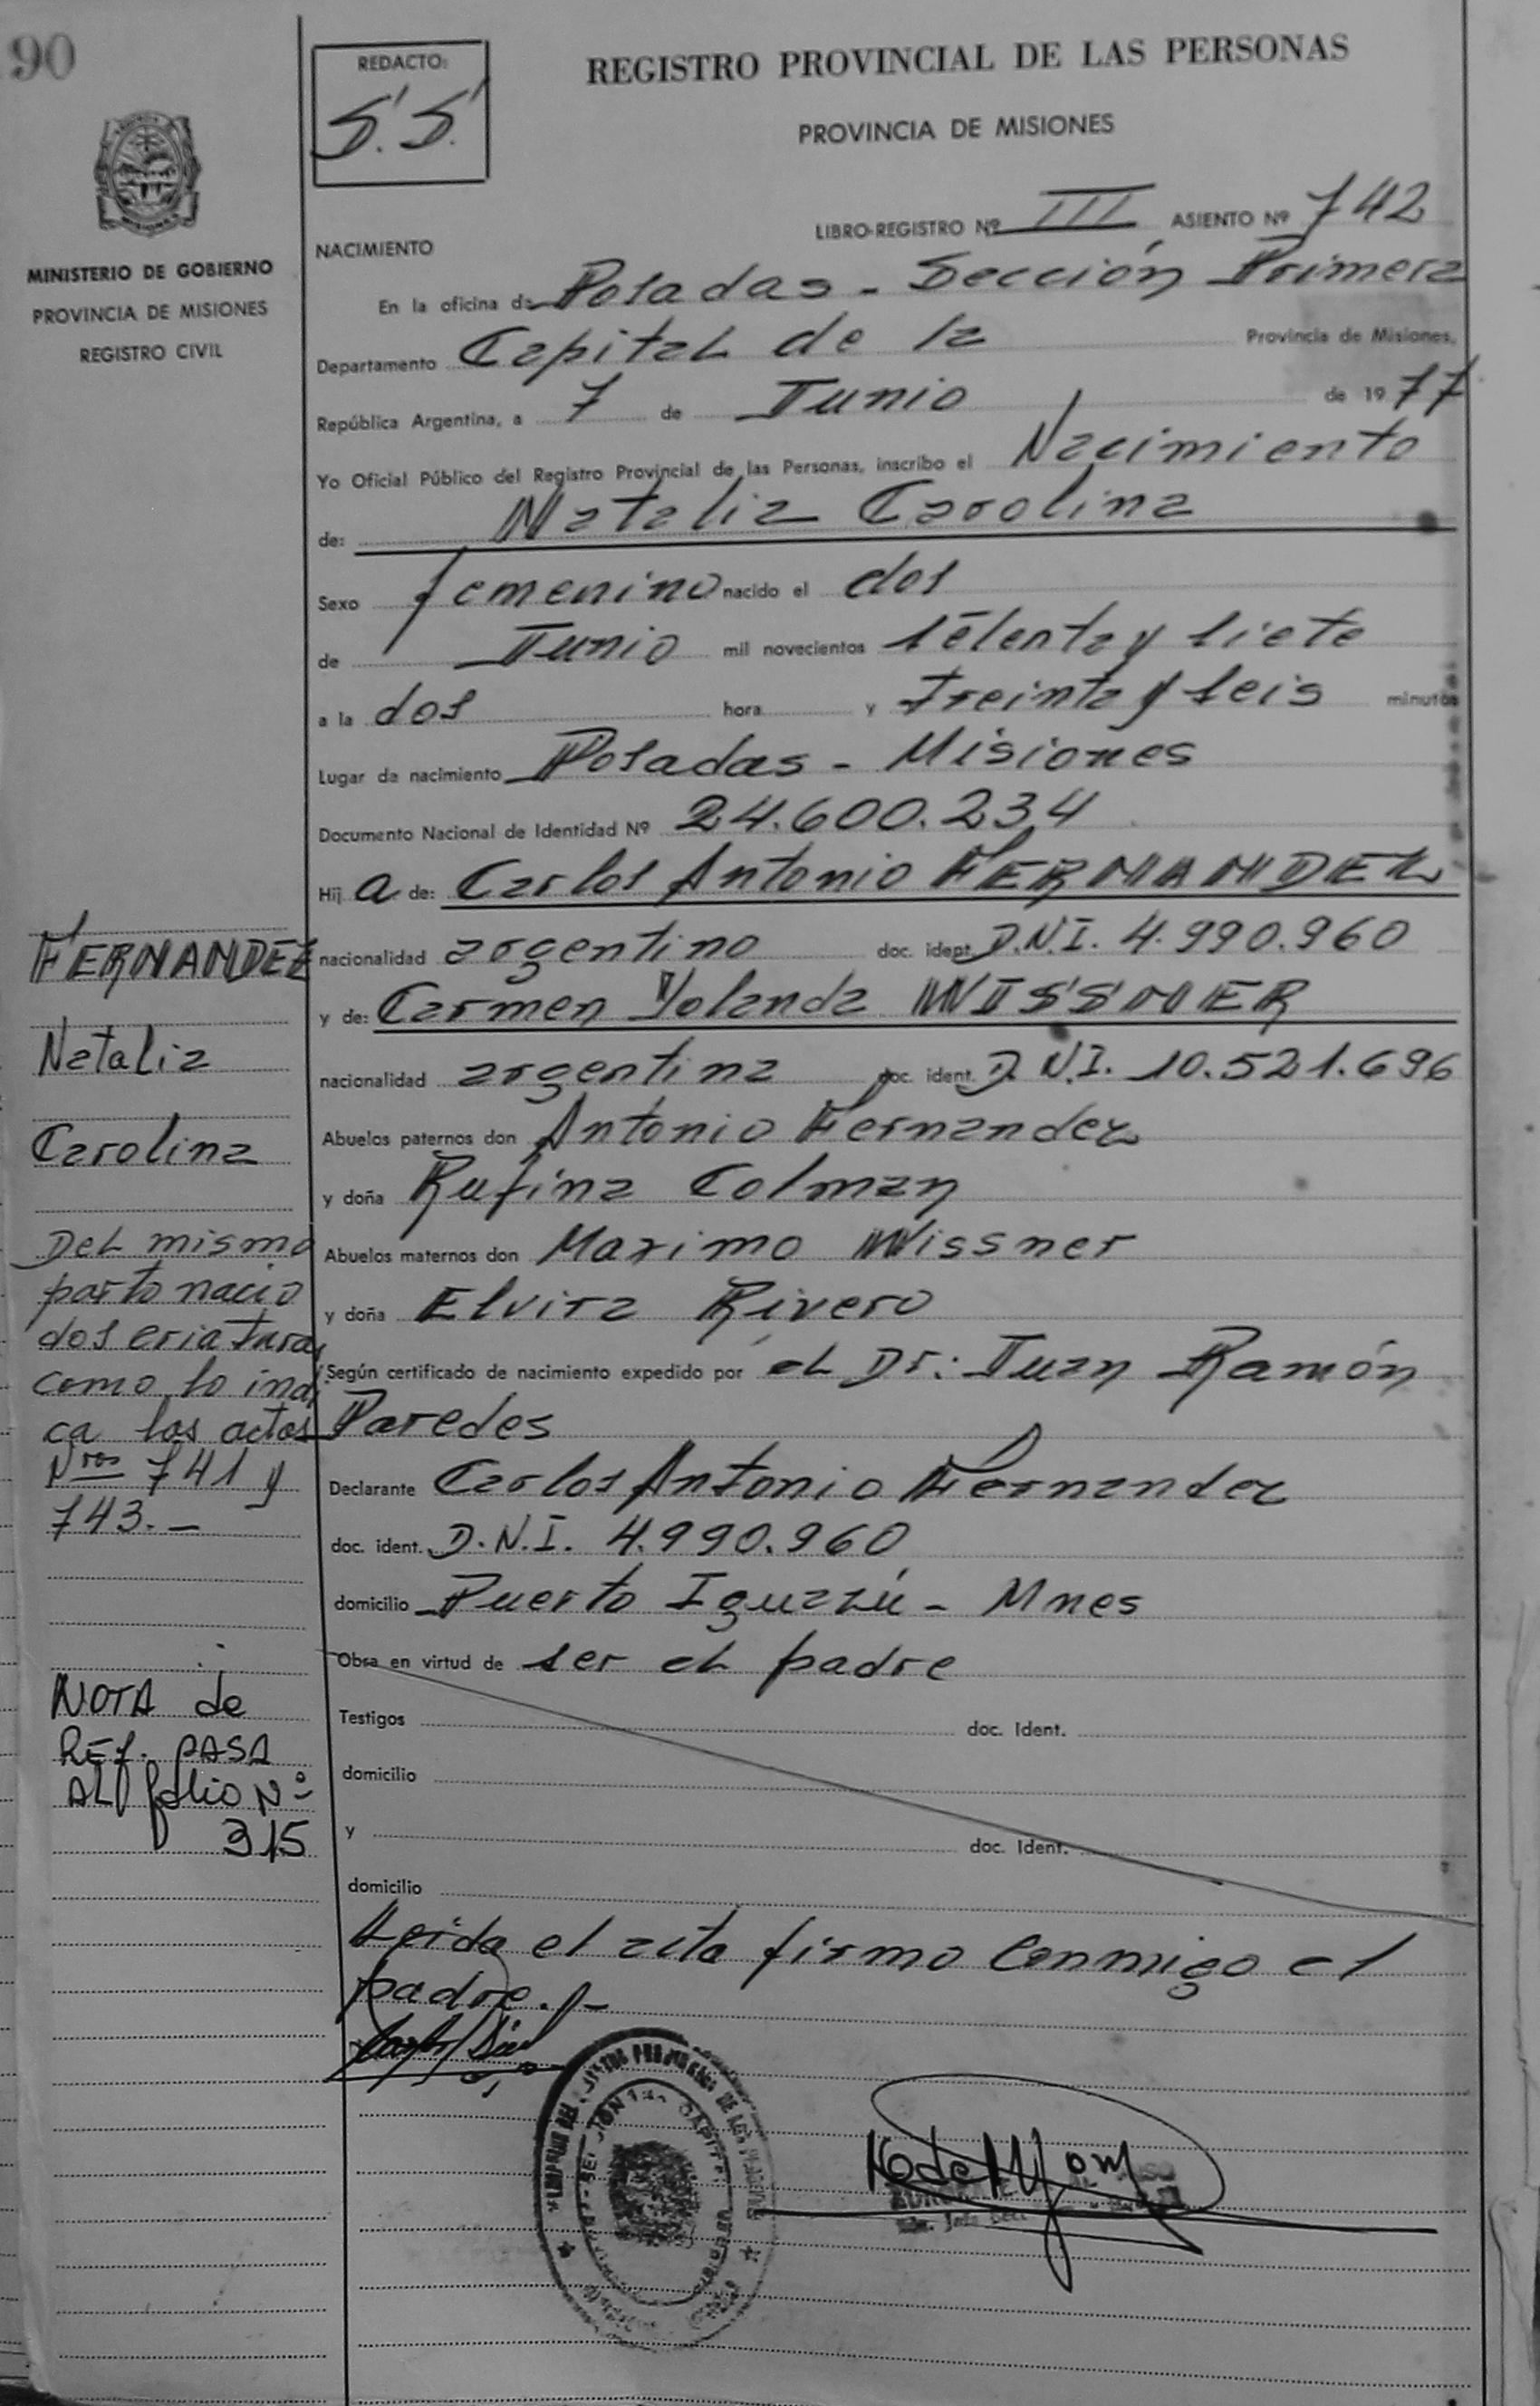 90
REDACTO:
S.S.
REGISTRO PROVINCIAL DE LAS PERSONAS
PROVINCIA DE MISIONES
MINISTERIO DE GOBIERNO
PROVINCIA DE MISIONES
REGISTRO CIVIL
LIBRO-REGISTRO Nº III ASIENTO Nº 742
NACIMIENTO
En la oficina de Posadas - Sección Primera
Departamento Capital de la Provincia de Misiones,
República Argentina, a 7 de Junio de 1977
Yo Oficial Público del Registro Provincial de las Personas, inscribo el Nacimiento
de: Natalia Carolina
Sexo femenino nacido el dos
de Junio mil novecientos setenta y siete
a la dos hora y treinta y seis minutos
Lugar de nacimiento Posadas - Misiones
Documento Nacional de Identidad Nº 24.600.234
Hij a de: Carlos Antonio FERNANDEZ
nacionalidad argentino doc. ident. D.N.I. 4.990.960
y de: Carmen Yolanda WISSNER
nacionalidad argentina doc. ident. D.N.I. 10.521.696
Abuelos paternos don Antonio Fernandez
y doña Rufina Colman
Abuelos maternos don Maximo Wissner
y doña Elvira Rivero
Según certificado de nacimiento expedido por el Dr: Juan Ramón
Paredes
Declarante Carlos Antonio Fernandez
doc. ident. D.N.I. 4.990.960
domicilio Puerto Iguazú - Mnes
Obra en virtud de ser el padre
Testigos doc. Ident.
domicilio
y doc. Ident.
domicilio
Leida el acta firmo conmigo el
padre.-
FERNANDEZ
Natalia
Carolina
Del mismo
parto nacio
dos criaturas
como lo indi
ca las actas
Nros 741 y
743.-
NOTA de
REF. PASA
AL folio Nº
315